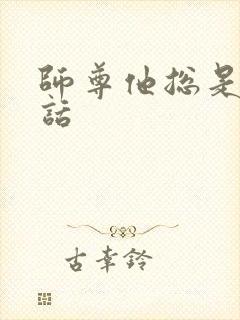 師尊他總是
話
古幸鈴